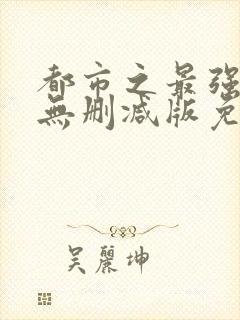 都市之最强
無删减版免
吴麗坤